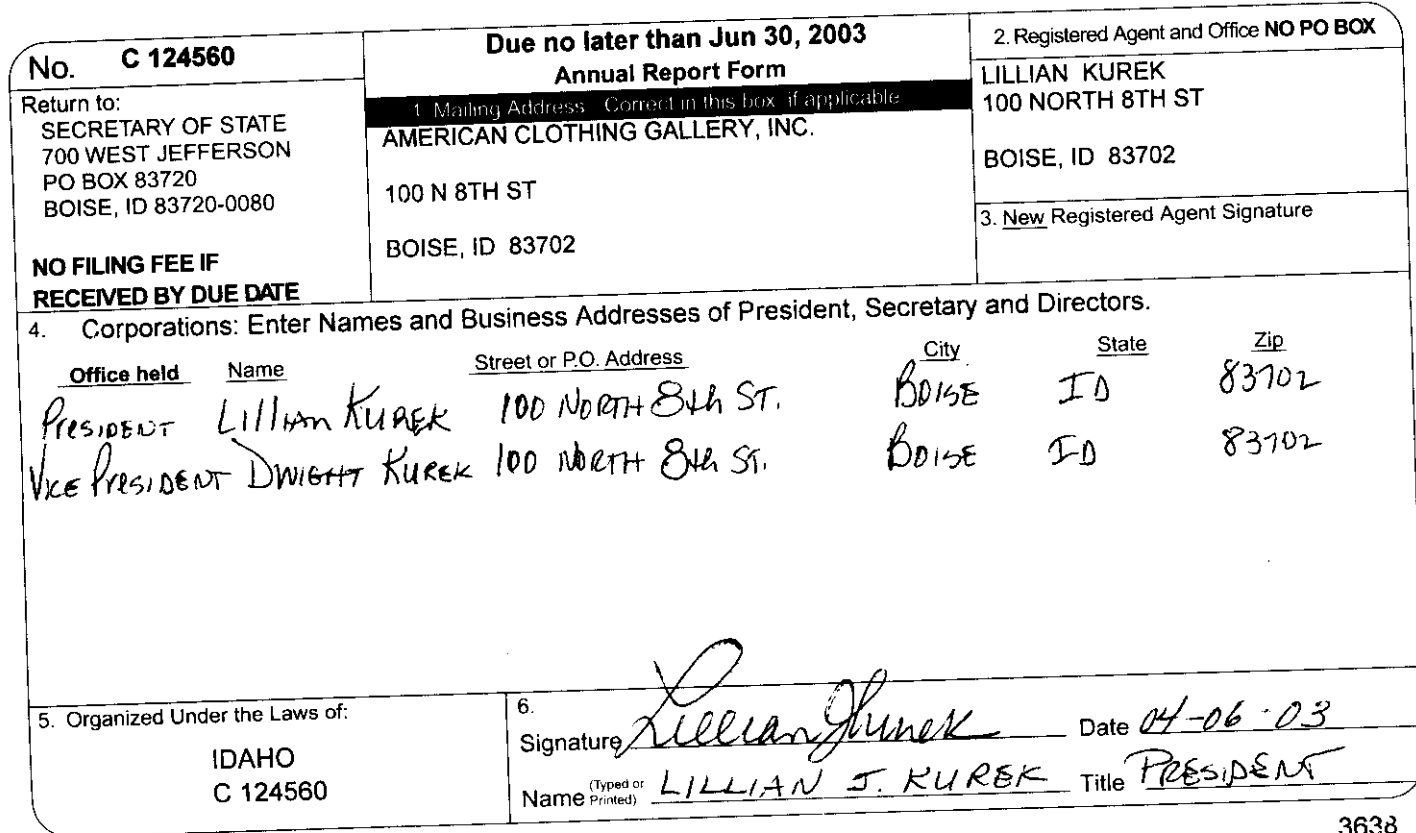 No. C 124560
Return to:
SECRETARY OF STATE
700 WEST JEFFERSON
PO BOX 83720
BOISE, ID 83720-0080
NO FILING FEE IF
RECEIVED BY DUE DATE
Due no later than Jun 30, 2003
Annual Report Form
1. Mailing Address Correct in this box if applicable
AMERICAN CLOTHING GALLERY, INC.
100 N 8TH ST
BOISE, ID 83702
2. Registered Agent and Office NO PO BOX
LILLIAN KUREK
100 NORTH 8TH ST
BOISE, ID 83702
3. New Registered Agent Signature
4. Corporations: Enter Names and Business Addresses of President, Secretary and Directors.
Office held Name Street or P.O. Address City State Zip
PRESIDENT LILLIAN KUREK 100 NORTH 8th ST. BOISE ID 83702
VICE PRESIDENT DWIGHT KUREK 100 NORTH 8th ST. BOISE ID 83702
5. Organized Under the Laws of:
IDAHO
C 124560
6.
Signature Lillian J Kurek Date 04-06-03
Name (Typed or Printed) LILLIAN J. KUREK Title PRESIDENT
3638